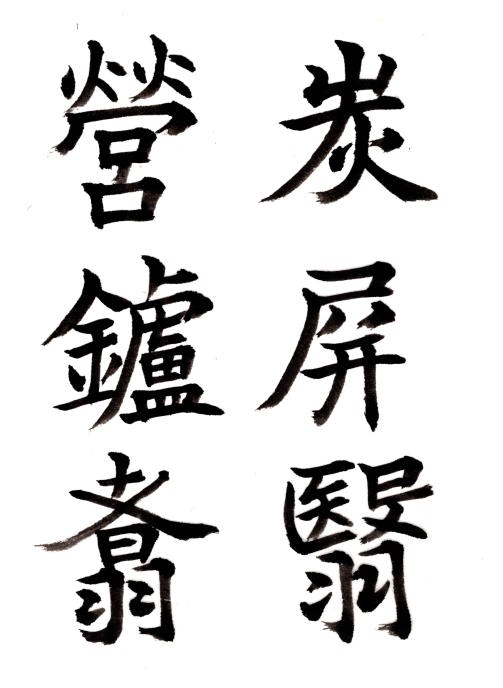 炭屏翳
營鑪翥